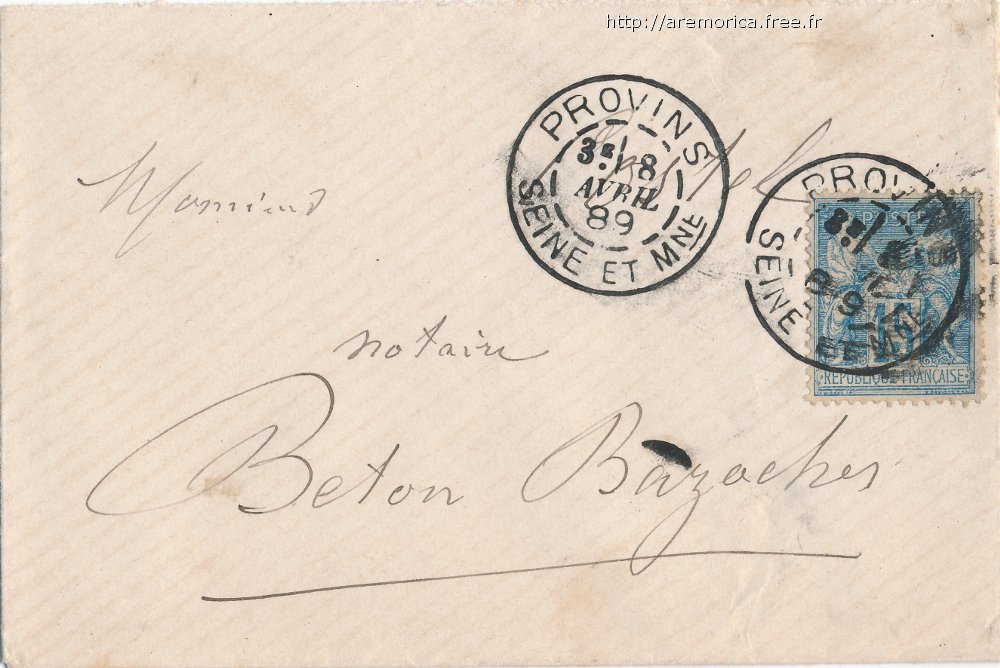 http://aremorica.free.fr
PROVINS
3E/ 8
AVRIL
89
SEINE ET MNE
PROVINS
8E/
89
SEINE ET MNE
15
RÉPUBLIQUE FRANÇAISE
Monsieur
notaire
Beton Bazoches